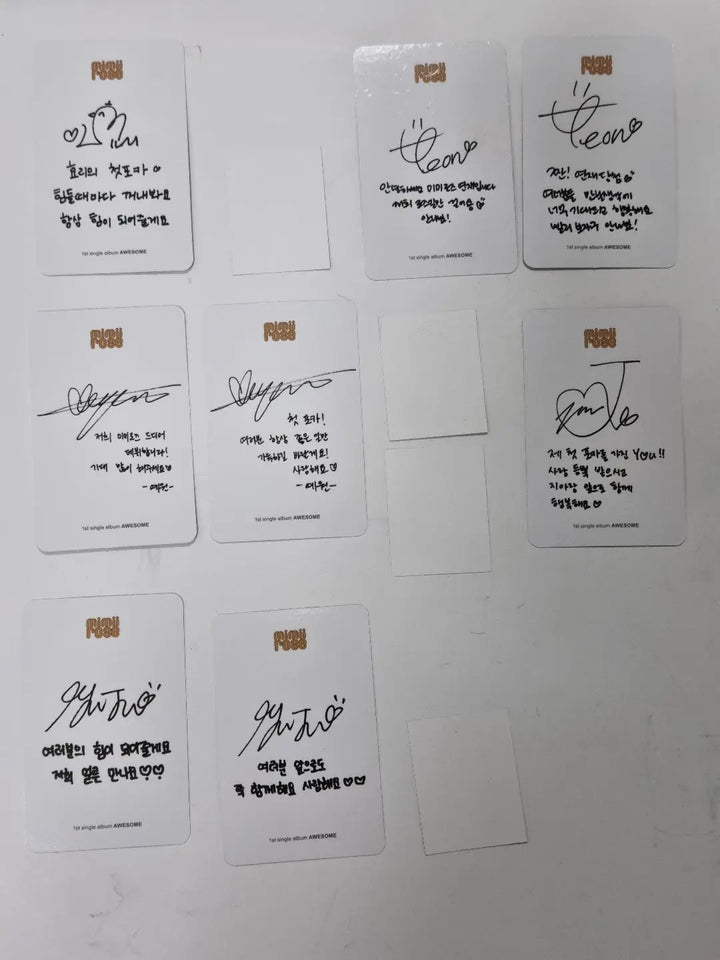 mimii
rose
효리의 첫포카
힘들때마다 꺼내봐요
항상 힘이 되어줄게요
1st single album AWESOME
mimii
rose
Yeon
안녕하세요 미미로즈 연재입니다
1st single album AWESOME
mimii
rose
Yeon
짠! 연재당첨
1st single album AWESOME
mimii
rose
저희 미미로즈 드디어
데뷔합니다!
기대 많이 해주세요♡
-예원-
1st single album AWESOME
mimii
rose
첫 포카!
여러분 항상 좋은 일만
가득하길 바랄게요!
사랑해요♡
-예원-
1st single album AWESOME
mimii
rose
제 첫 포카를 가진 You!!
사랑 듬뿍 받으시고
지아랑 앞으로 함께
행복해요♡
1st single album AWESOME
mimii
rose
YunJu
여러분의 힘이 되어줄게요
저희 얼른 만나요♡♡
1st single album AWESOME
mimii
rose
YunJu
여러분 앞으로도
쭉 함께해요 사랑해요♡♡
1st single album AWESOME